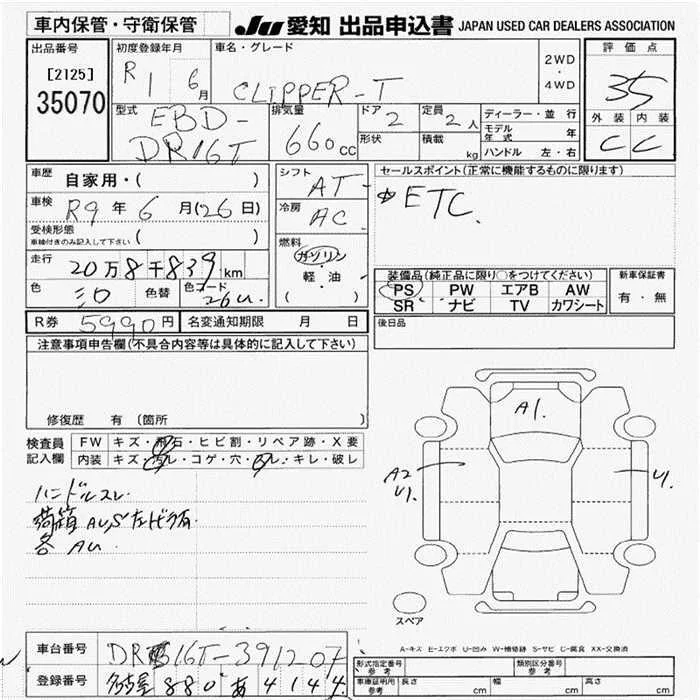 車内保管・守衛保管 JU 愛知 出品申込書 JAPAN USED CAR DEALERS ASSOCIATION
出品番号 初度登録年月 車名・グレード 2WD・4WD 評価点
[2125] R1 6月 CLIPPER-T 35
35070 型式 EBD-DR16T 排気量 660cc ドア 2 定員 2人 ディーラー・並行 外装 内装
形状 積載 kg モデル年式 年 CC
ハンドル 左・右
車歴 自家用・( ) シフト AT セールスポイント(正常に機能するものに限ります)
車検 R9年6月(26日) 冷房 AC ETC
受検形態 ( )
車検付きのみ記入して下さい
燃料 ガソリン
軽・油
( )
走行 20万8千839km 装備品(純正品に限り○をつけてください) 新車保証書
色 シロ 色替 色コード 26U PS PW エアB AW 有・無
SR ナビ TV カワシート
R券 5990円 名変通知期限 月 日 後日品
注意事項申告欄(不具合内容等は具体的に記入して下さい)
修復歴 有 (箇所
検査員 FW キズ・飛石・ヒビ割・リペア跡・X要
記入欄 内装 キズ・汚レ・コゲ・穴・スレ・キレ・破レ
A1
A2
U1
U1
ハンドルスレ
荷箱 AU,S
各 AU
スペア
A-キズ E-エクボ U-凹み W-補修跡 S-サビ C-腐食 XX-交換済
車台番号 DR16T-391207 形式指定番号 類別区分番号
参考 参考
登録番号 名古屋 880 あ 4144 車検証記入 長さ cm 幅 cm 高さ cm
参考